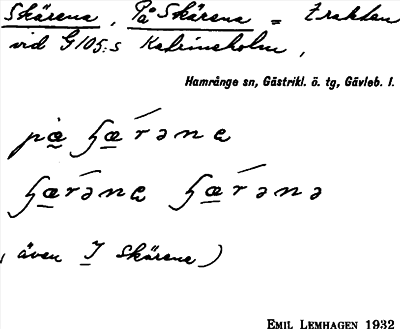 Skärena, På Skärena = Trakten
vid G105:s Katrineholm,
Hamrånge sn, Gästrikl. ö. tg, Gävleb. l.
på ʃærəna
ʃærəna ʃærənə
(även I Skärena)
EMIL LEMHAGEN 1932